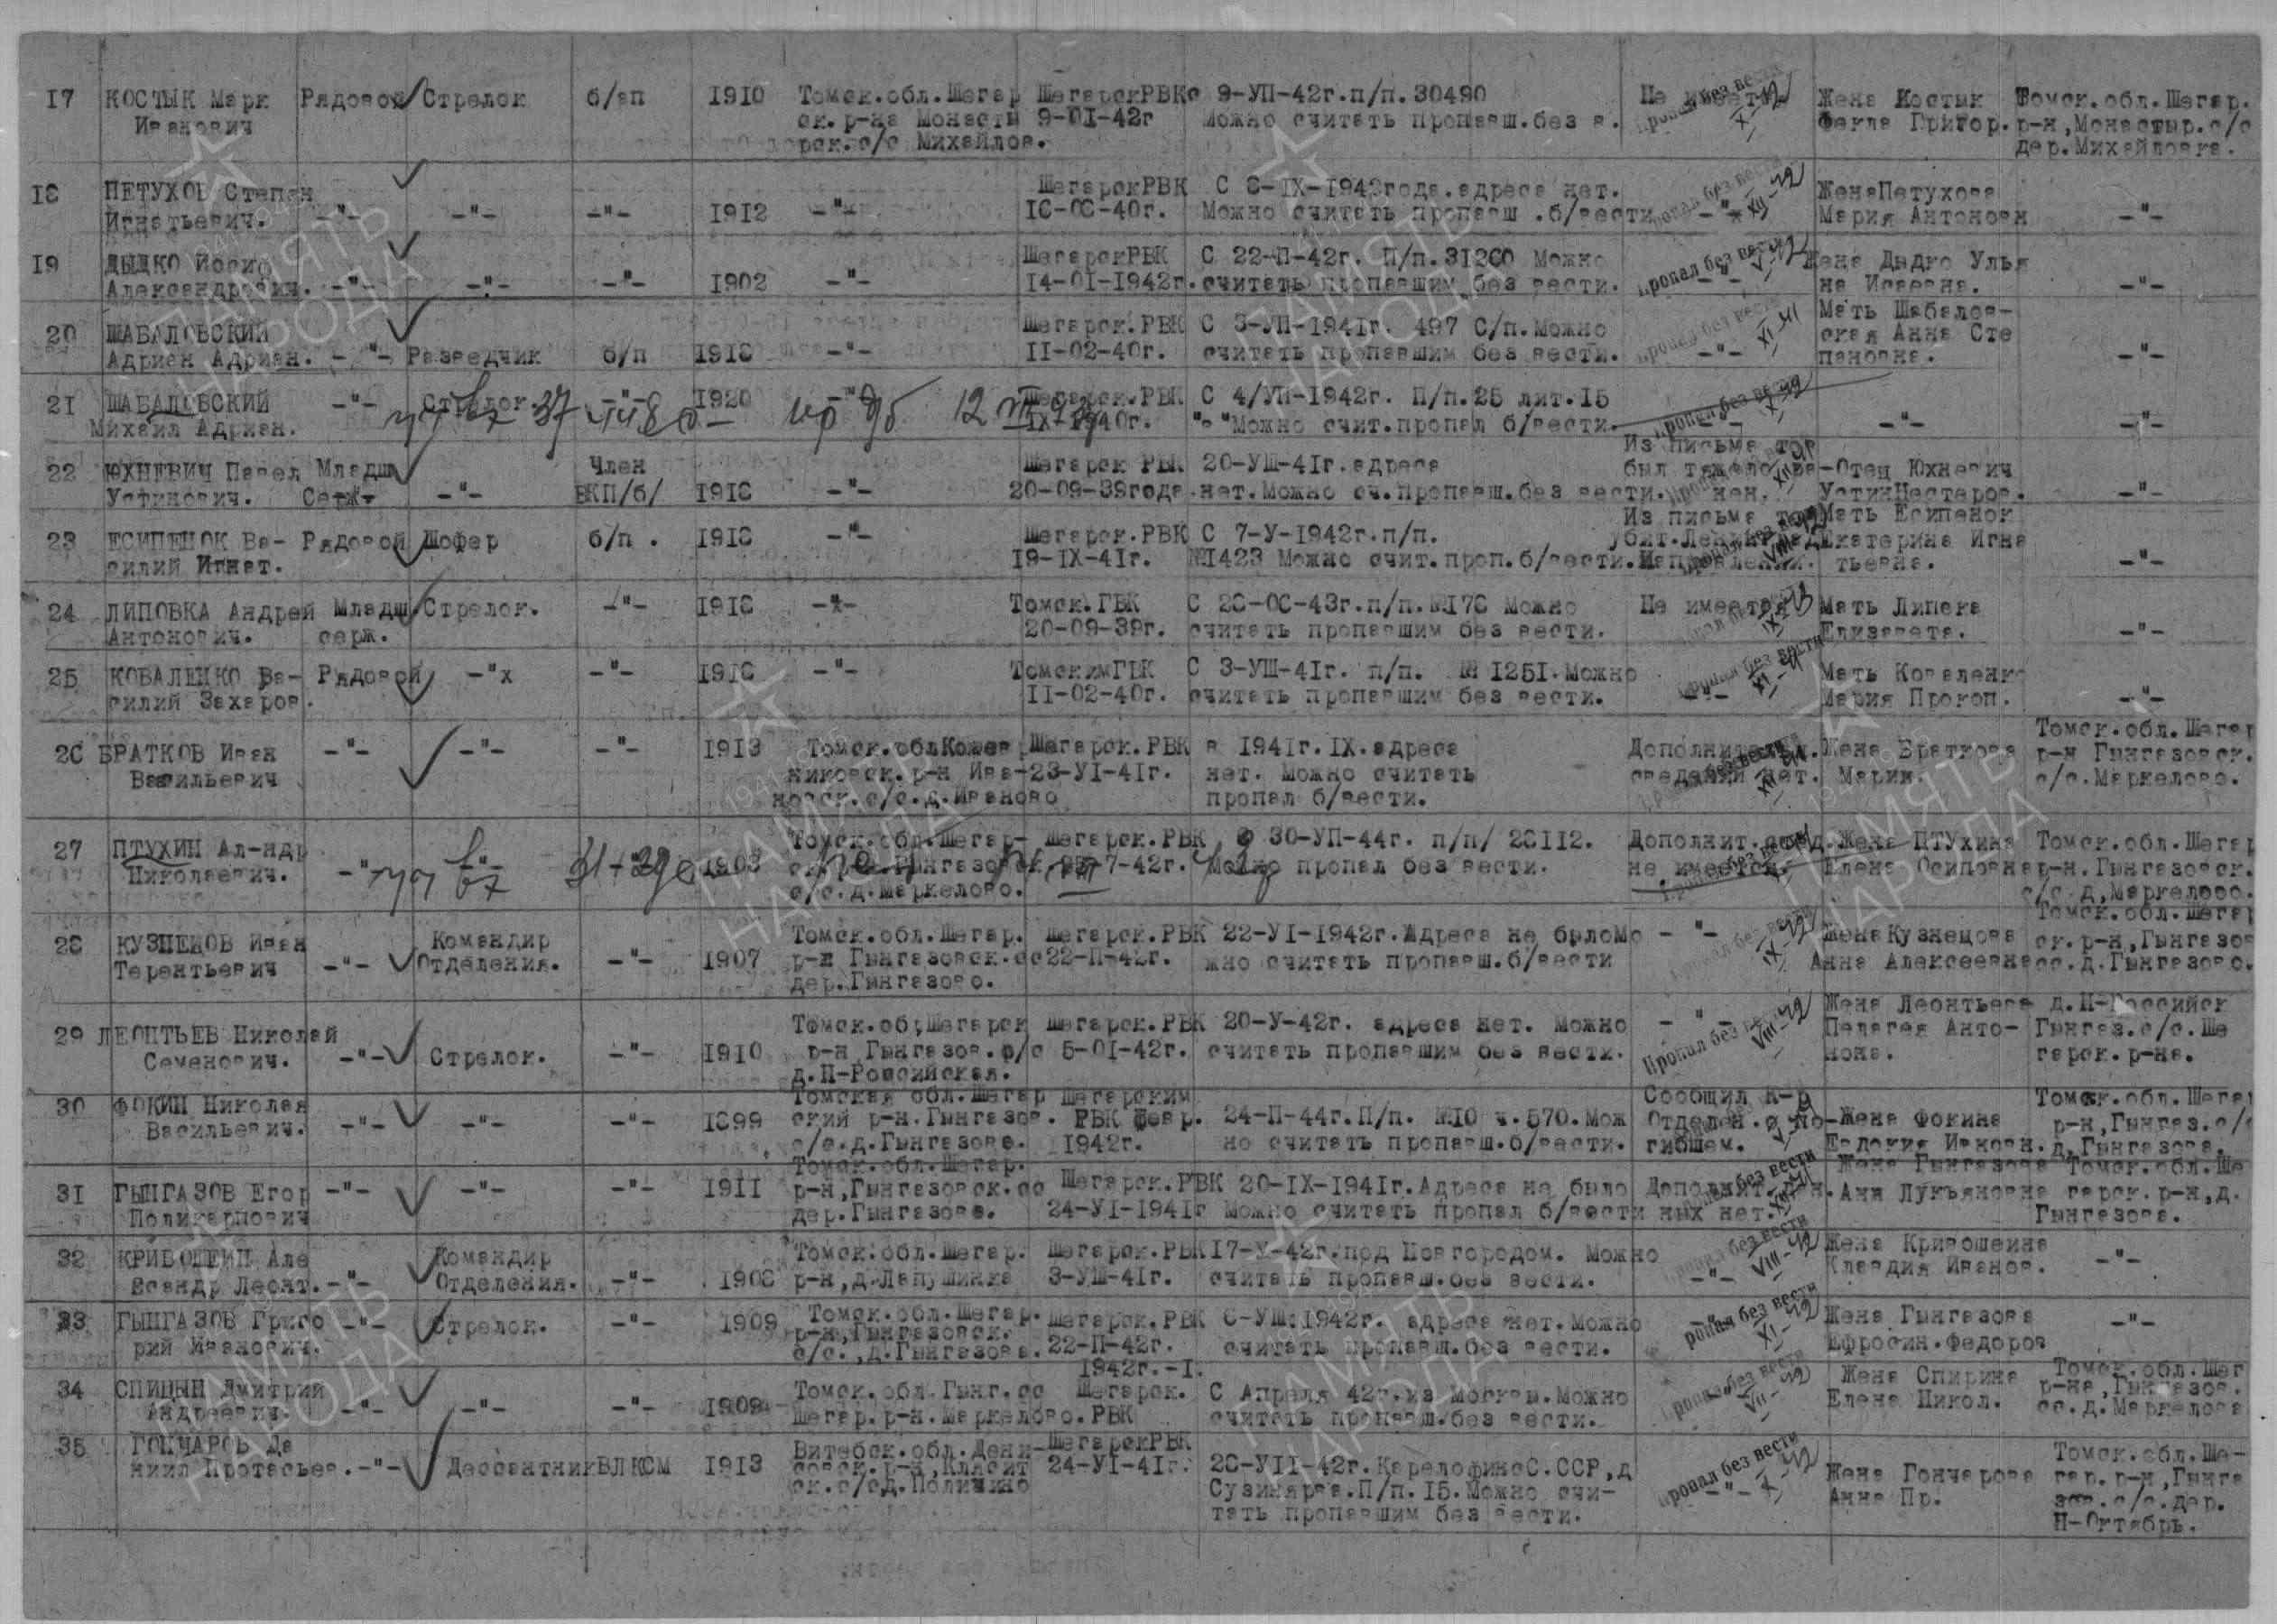 17 КОСТЫК Марк Рядовой Стрелок б/пп 1910 Томск.обл.Шегар ШегарскРВКс 9-УП-42г.п/п.30490 Не имеется Жена Костык Томск.обл.Шегар.
Иванович ск.р-на Монасты 9-01-42г Можно считать пропавш.без в. Фекла Григор. р-н,Монастыр.с/с
рск.с/с Михайлов. дер.Михайловка.
Пропал без вести X-42
18 ПЕТУХОВ Степан ШегарскРВК С 8-IX-1942года.адреса нет. ЖенаПетухова
Игнатьевич. -"- -"- -"- 1912 -"- 18-08-40г. Можно считать пропавш .б/вести -"- Мария Антоновн -"-
пропал без вести XII-42
19 ДЫДКО Йосиф ШегарскРВК С 22-П-42г. П/п.31260 Можно Жена Дыдко Улья
Александрович. -"- -"- -"- 1902 -"- 14-01-1942г. считать пропавшим без вести. -"- на Исаевна. -"-
Пропал без вести V-42
20 ШАБАЛОВСКИЙ Шегарск.РВК С 3-УП-1941г. 497 С/п.Можно Мать Шабалов-
Адриан Адриан. -"- Разведчик б/п 1918 -"- 11-02-40г. считать пропавшим без вести. -"- ская Анна Сте
пановна. -"-
Пропал без вести XI-41
21 ШАБАЛОВСКИЙ -"- Стрелок -"- 1920 -"- Шегарск.РВК С 4/УП-1942г. П/п.25 лит.15
Михаил Адриан. IX-1940г. "-"Можно счит.пропал б/вести. -"- -"- -"-
Пропал без вести X-42
Из письма тов
22 ЮХНЕВИЧ Павел Младш Член Шегарск РВК 20-УШ-41г.адреса был тяжело ра- Отец Юхневич
Устинович. Серж. -"- ВКП/б/ 1918 -"- 20-09-39года. нет.Можно сч.пропавш.без вести. нен. УстинНестеров. -"-
Из письма тов Мать Есипенок
23 ЕСИПЕНОК Ва- Рядовой Шофер б/п . 1918 -"- Шегарск.РВК С 7-У-1942г.п/п. убит.Ленинград Екатерина Игна
силий Игнат. 19-IX-41г. №1423 Можно счит.проп.б/вести. Направлении. тьевна. -"-
24 ЛИПОВКА Андрей Младш Стрелок. -"- 1918 -"- Томск.ГВК С 28-08-43г.п/п.№178 Можно Не имеется Мать Липока
Антонович. серж. 20-09-39г. считать пропавшим без вести. Елизавета. -"-
25 КОВАЛЕНКО Ва- Рядовой -"х -"- 1918 -"- ТомскимГВК С 3-УШ-41г. п/п. № 1251.Можно Мать Коваленко
силий Захаров. 11-02-40г. считать пропавшим без вести. -"- Мария Прокоп. -"-
Пропал без вести XI-41
26 БРАТКОВ Иван -"- -"- -"- 1913 Томск.обл.Кожев Шегарск.РВК в 1941г.IX.адреса Дополнительн. Жена Браткова Томск.обл.Шегар
Васильевич никовск.р-н Ива- 23-УI-41г. нет. Можно считать сведений нет. Мария. р-н Гынгазовск.
новск.с/с.д.Иваново пропал б/вести. с/с.Маркелово.
27 ПТУХИН Ал-ндр Томск.обл.Шегар- Шегарск.РВК С 30-УП-44г. п/п/ 28112. Дополнит.свед. Жена ПТУхина Томск.обл.Шегар
Николаевич. -"- 1908 7-42г. Можно пропал без вести. не имеется. Елена Осиповна р-н.Гынгазовск.
с/с.д.Маркелово. с/с.д,Маркелово.
28 КУЗНЕЦОВ Иван Командир Томск.обл.Шегар. Шегарск.РВК 22-УI-1942г.Адреса не былоМо -"- ЖенаКузнецова Томск.обл.Шегар
Терентьевич -"- Отделения. -"- 1907 р-н Гынгазовск.сс 22-П-42г. жно считать пропавш.б/вести Анна Алексеевна ск.р-н,Гынгазов
дер.Гынгазово. сс.д.Гынгазово.
IX-42
29 ЛЕОНТЬЕВ Николай Томск.об,Шегарск Шегарск.РВК 20-У-42г. адреса нет. Можно -"- Жена Леонтьева д.Н-Российск
Семенович. -"- Стрелок. -"- 1910 р-н Гынгазов.с/с 5-01-42г. считать пропавшим без вести. Пелагея Анто- Гынгаз.с/с.Ше
д.Н-Российская. нона. гарск.р-на.
Пропал без вести VIII-42
30 ФОКИН Николая Томская обл.Шегар Шегарским Сообщил к-р Томск.обл.Шегар
Васильевич. -"- -"- -"- 1899 ский р-н.Гынгазов. РВК февр. 24-П-44г.П/п. №10 ч.570.Мож Отделен.о по- Жена Фокина р-н,Гынгаз.с/с
с/с.д.Гынгазово. 1942г. но считать пропавш.б/вести. гибшем. Евдокия Ивановн. д.Гынгазова.
Томск.обл.Шегар. Жена Гынгазова Томск.обл.Ше
31 ГЫНГАЗОВ Егор -"- -"- -"- 1911 р-н,Гынгазовск.сс Шегарск.РВК 20-IX-1941г.Адреса не было Дополнит. Аня Лукъяновна гарск.р-н,д.
Поликарпович дер.Гынгазово. 24-УI-1941г Можно считать пропал б/вести ных нет. Гынгазова.
32 КРИВОШЕИН Але Командир Томск.обл.Шегар. Шегарск.РВК 17-У-42г.под Новгородом. Можно Жена Кривошеина
ксандр Леонт. -"- Отделения. -"- 1908 р-н,д.Лапушинка 3-УШ-41г. считать пропавш.без вести. -"- Клавдия Иванов. -"-
VIII-42
33 ГЫНГАЗОВ Григо -"- Стрелок. -"- 1909 Томск.обл.Шегар. Шегарск.РВК 6-УШ.1942г. адреса нет.Можно Жена Гынгазова -"-
рий Иванович. р-на,Гынгазовск. 22-П-42г. считать пропавш.без вести. Ефросин.Федоров
с/с.,д.Гынгазова.
Пропал без вести XI-42
1942г.-I.
34 СПИЦЫН Дмитрий Томск.обл.Гынг.сс Шегарск. С Апреля 42г.из Москвы.Можно Жена Спирина Томск.обл.Шег
Андреевич. -"- -"- -"- 1909 Шегар.р-н.Маркелово. РВК считать пропавш.без вести. Елена Никол. р-на,Гынгазов.
сс.д.Маркелова
Пропал без вести VII-42
35 ГОНЧАРОВ Да Витебск.обл.Дени- ШегарскРВК Томск.обл.Ше-
ниил Протасьев. -"- Десантник ВЛКСМ 1913 совск.р-н,Клясит 24-УI-41г. 28-УII-42г.КарелофинсС.ССР,д -"- Жена Гончарова гар.р-н,Гынга
ск.с/сд.Поличино Сузиярва.П/п.15.Можно счи- Анна Пр. зов.с/с.дер.
тать пропавшим без вести. Н-Октябрь.
Пропал без вести X-42
ПАМЯТЬ
НАРОДА